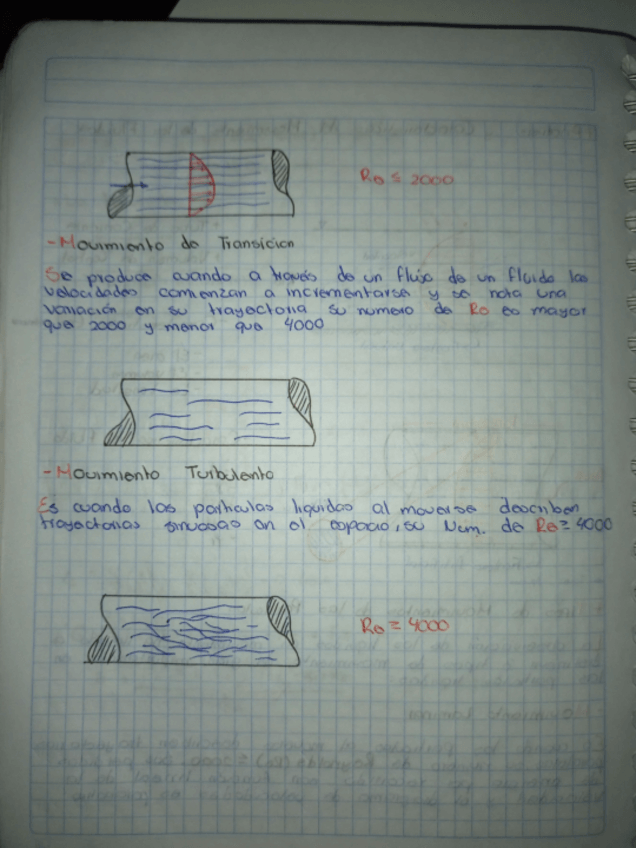 Re ≤ 2000
- Movimiento de Transicion
Se produce cuando a través de un flujo de un fluido las
velocidades comienzan a incrementarse y se nota una
variación en su trayectoria su numero de Re es mayor
que 2000 y menor que 4000
- Movimiento Turbulento
Es cuando las particulas liquidas al moverse describen
trayectorias sinuosas en el espacio, su Num. de Re ≥ 4000
Re ≥ 4000